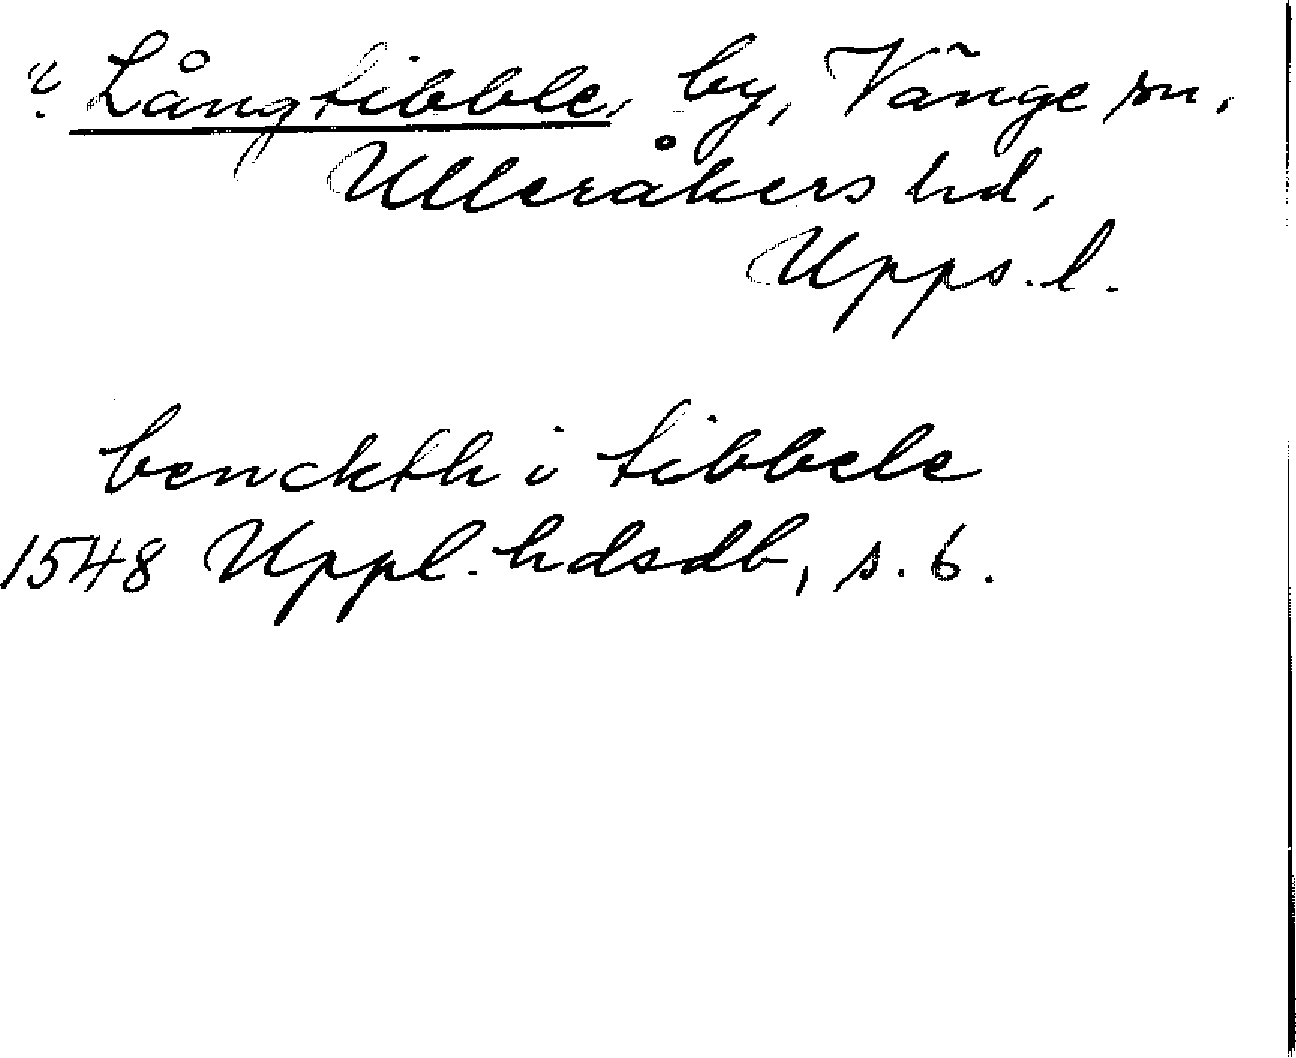 ? Långtibble, by, Vänge sn,
Ulleråkers hd,
Upps. l.
benckth i tibbele
1548 Uppl. hdsdb, s. 6.